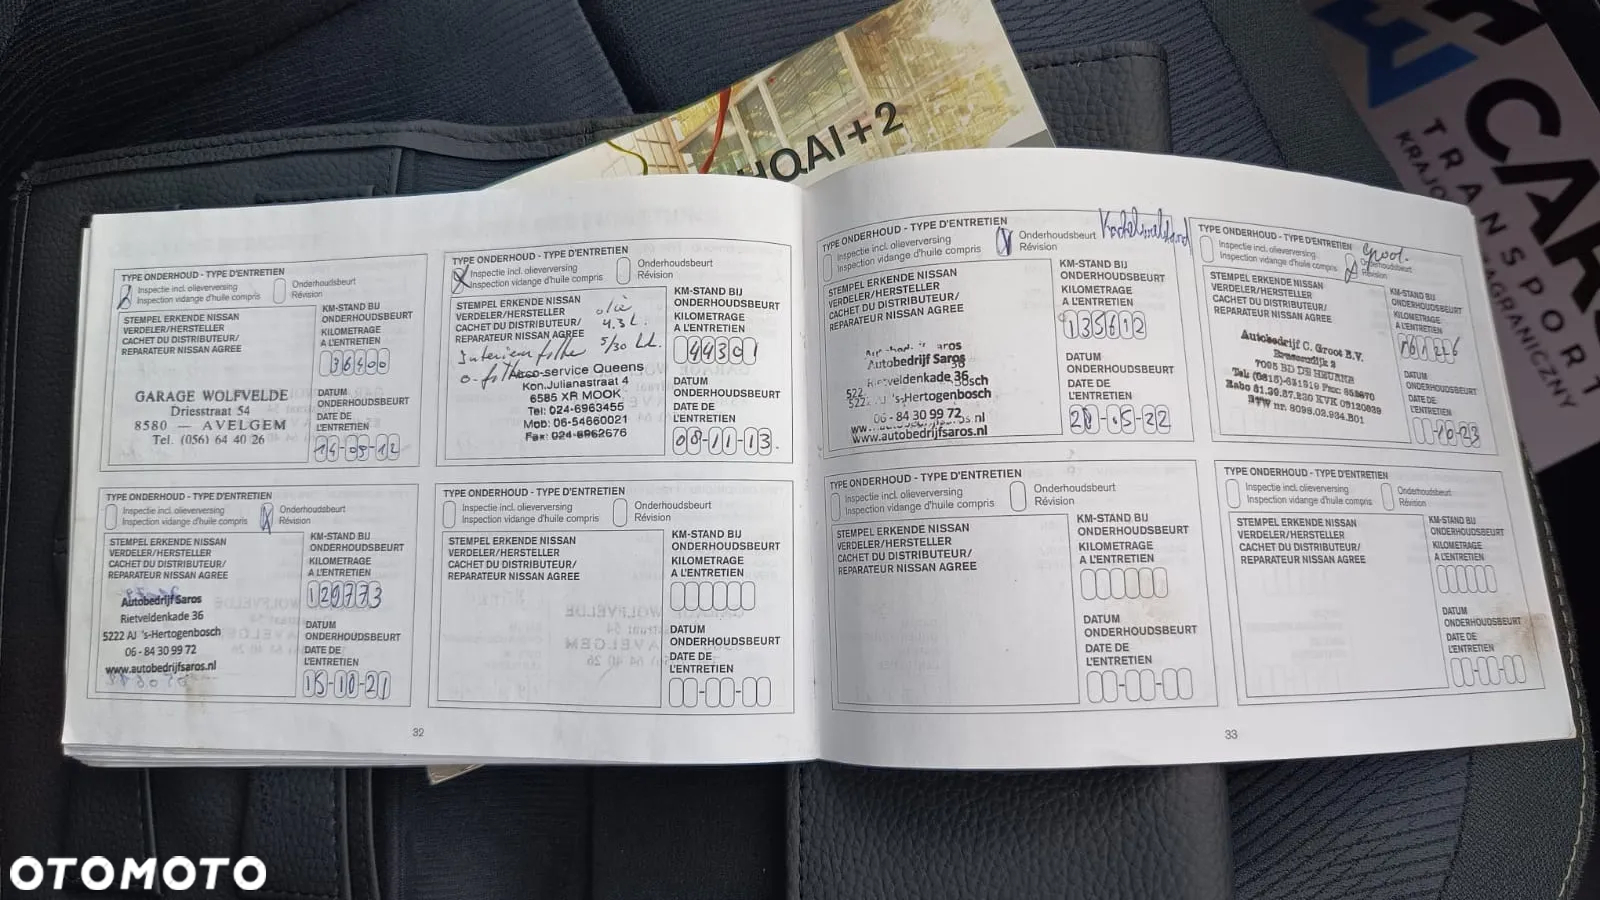 HQAI+2
CAR
TRANSPORT
TYPE ONDERHOUD - TYPE D'ENTRETIEN
Inspectie incl. olieverversing
Inspection vidange d'huile compris
Onderhoudsbeurt
Révision
STEMPEL ERKENDE NISSAN
VERDELER/HERSTELLER
CACHET DU DISTRIBUTEUR/
REPARATEUR NISSAN AGREE
KM-STAND BIJ
ONDERHOUDSBEURT
KILOMETRAGE
A L'ENTRETIEN
36400
GARAGE WOLFVELDE
Driesstraat 54
8580 — AVELGEM
Tel. (056) 64 40 26
DATUM
ONDERHOUDSBEURT
DATE DE
L'ENTRETIEN
14-05-12
TYPE ONDERHOUD - TYPE D'ENTRETIEN
Inspectie incl. olieverversing
Inspection vidange d'huile compris
Onderhoudsbeurt
Révision
STEMPEL ERKENDE NISSAN
VERDELER/HERSTELLER
CACHET DU DISTRIBUTEUR/
REPARATEUR NISSAN AGREE
olie
4.3 L.
5/30 LL.
KM-STAND BIJ
ONDERHOUDSBEURT
KILOMETRAGE
A L'ENTRETIEN
44301
-service Queens
Kon.Julianastraat 4
6585 XR MOOK
Tel: 024-6963455
Mob: 06-54660021
Fax: 024-6962676
DATUM
ONDERHOUDSBEURT
DATE DE
L'ENTRETIEN
08-11-13
TYPE ONDERHOUD - TYPE D'ENTRETIEN
Inspectie incl. olieverversing
Inspection vidange d'huile compris
Onderhoudsbeurt
Révision
STEMPEL ERKENDE NISSAN
VERDELER/HERSTELLER
CACHET DU DISTRIBUTEUR/
REPARATEUR NISSAN AGREE
KM-STAND BIJ
ONDERHOUDSBEURT
KILOMETRAGE
A L'ENTRETIEN
129773
Autobedrijf Saros
Rietveldenkade 36
5222 AJ 's-Hertogenbosch
06 - 84 30 99 72
www.autobedrijfsaros.nl
DATUM
ONDERHOUDSBEURT
DATE DE
L'ENTRETIEN
15-10-21
TYPE ONDERHOUD - TYPE D'ENTRETIEN
Inspectie incl. olieverversing
Inspection vidange d'huile compris
Onderhoudsbeurt
Révision
STEMPEL ERKENDE NISSAN
VERDELER/HERSTELLER
CACHET DU DISTRIBUTEUR/
REPARATEUR NISSAN AGREE
KM-STAND BIJ
ONDERHOUDSBEURT
KILOMETRAGE
A L'ENTRETIEN
DATUM
ONDERHOUDSBEURT
DATE DE
L'ENTRETIEN
32
TYPE ONDERHOUD - TYPE D'ENTRETIEN
Inspectie incl. olieverversing
Inspection vidange d'huile compris
Onderhoudsbeurt
Révision
STEMPEL ERKENDE NISSAN
VERDELER/HERSTELLER
CACHET DU DISTRIBUTEUR/
REPARATEUR NISSAN AGREE
KM-STAND BIJ
ONDERHOUDSBEURT
KILOMETRAGE
A L'ENTRETIEN
135612
Autobedrijf Saros
Rietveldenkade 36
's-Hertogenbosch
06 - 84 30 99 72
www.autobedrijfsaros.nl
DATUM
ONDERHOUDSBEURT
DATE DE
L'ENTRETIEN
20-05-22
TYPE ONDERHOUD - TYPE D'ENTRETIEN
Groot.
Inspectie incl. olieverversing
Inspection vidange d'huile compris
Onderhoudsbeurt
Révision
STEMPEL ERKENDE NISSAN
VERDELER/HERSTELLER
CACHET DU DISTRIBUTEUR/
REPARATEUR NISSAN AGREE
KM-STAND BIJ
ONDERHOUDSBEURT
KILOMETRAGE
A L'ENTRETIEN
Autobedrijf C. Groot B.V.
DATUM
ONDERHOUDSBEURT
DATE DE
L'ENTRETIEN
-10-23
TYPE ONDERHOUD - TYPE D'ENTRETIEN
Inspectie incl. olieverversing
Inspection vidange d'huile compris
Onderhoudsbeurt
Révision
STEMPEL ERKENDE NISSAN
VERDELER/HERSTELLER
CACHET DU DISTRIBUTEUR/
REPARATEUR NISSAN AGREE
KM-STAND BIJ
ONDERHOUDSBEURT
KILOMETRAGE
A L'ENTRETIEN
DATUM
ONDERHOUDSBEURT
DATE DE
L'ENTRETIEN
TYPE ONDERHOUD - TYPE D'ENTRETIEN
Inspectie incl. olieverversing
Inspection vidange d'huile compris
Onderhoudsbeurt
Révision
STEMPEL ERKENDE NISSAN
VERDELER/HERSTELLER
CACHET DU DISTRIBUTEUR/
REPARATEUR NISSAN AGREE
KM-STAND BIJ
ONDERHOUDSBEURT
KILOMETRAGE
A L'ENTRETIEN
DATUM
ONDERHOUDSBEURT
DATE DE
L'ENTRETIEN
33
OTOMOTO